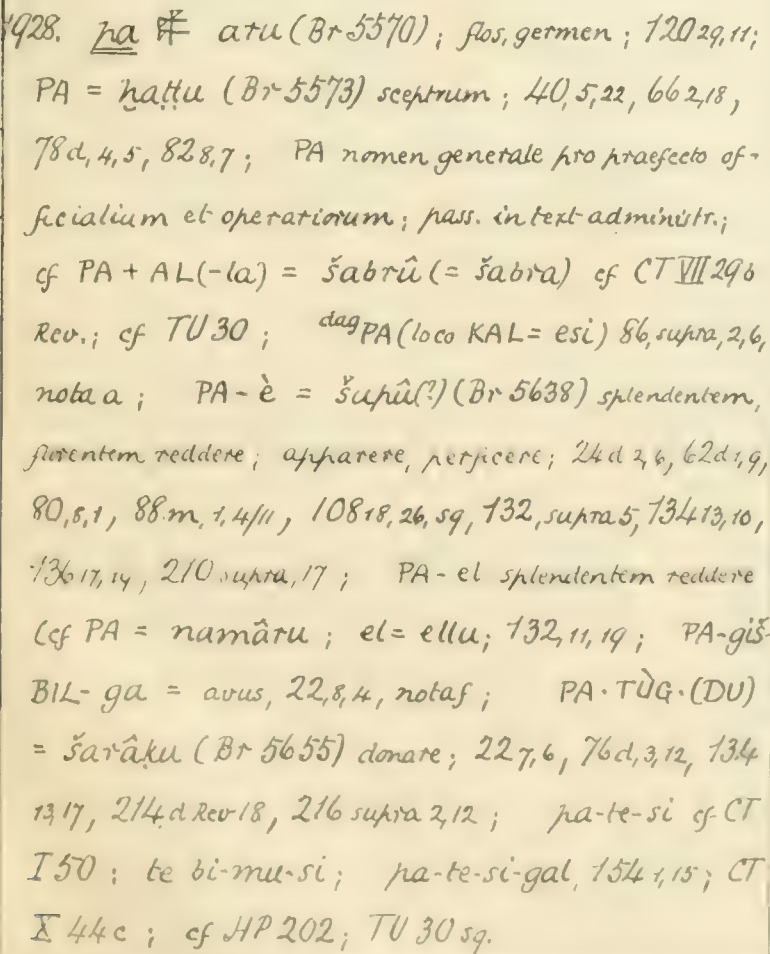 1928. pa 𒉺 aru (Br 5570); flos, germen; 120 29, 11;
PA = ḫaṭṭu (Br 5573) sceptrum; 40, 5, 22, 66 2, 18,
78 d, 4, 5, 82 8, 7; PA nomen generale pro praefecto of-
ficialium et operariorum; pass. in text administr.;
cf PA + AL(-la) = šabrû (= šabra) cf CT VII 29 b
Rev.; cf TU 30; dag PA (loco KAL = esi) 86, supra, 2, 6,
nota a; PA-è = šupû(?) (Br 5638) splendentem,
florentem reddere; apparere, perficere; 24 d 2, 6, 62 d 1, 9,
80, 8, 1, 88 m, 1, 4/11, 108 18, 26, sq, 132, supra 5, 134 13, 10,
136 17, 14, 210 supra, 17; PA-el splendentem reddere
(cf PA = namâru; el = ellu; 132, 11, 19; PA-giš-
BIL-ga = avus, 22, 8, 4, nota f; PA·TÙG·(DU)
= šarâḳu (Br 5655) donare; 22 7, 6, 76 d, 3, 12, 134
13, 17, 214 d Rev 18, 216 supra 2, 12; pa-te-si cf CT
I 50; te bi-mu-si; pa-te-si-gal, 154 1, 15; CT
X 44 c; cf HP 202; TU 30 sq.